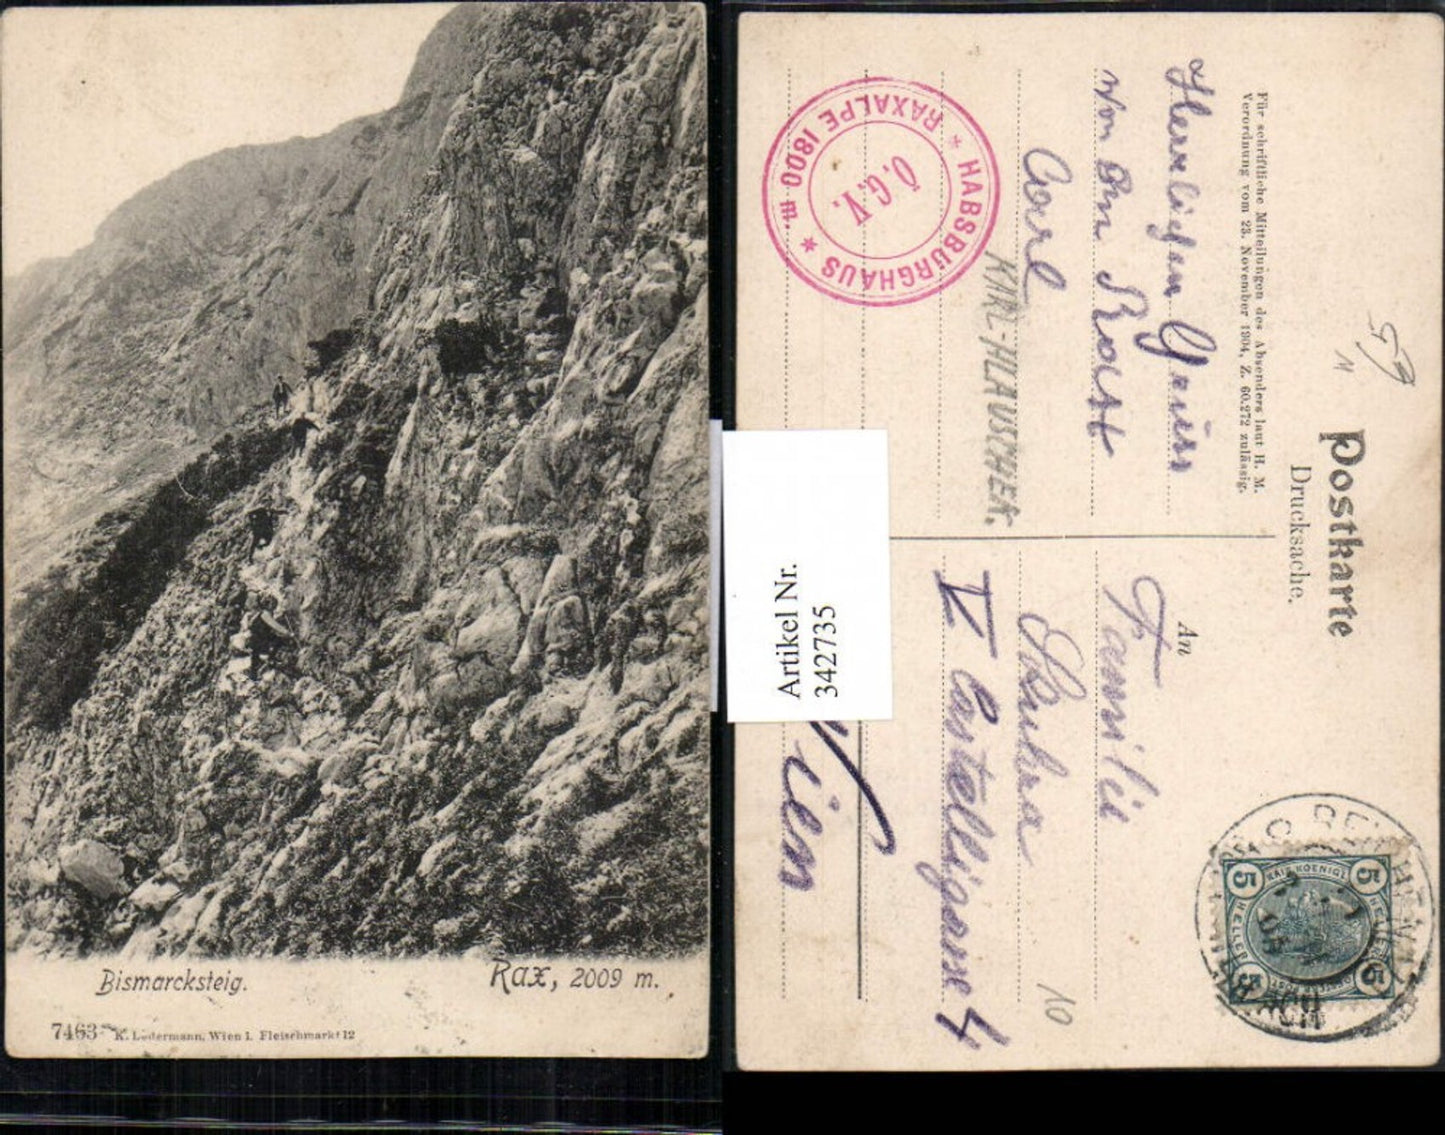 Bismarcksteig.
Rax, 2009 m.
7463 K. Ledermann, Wien 1. Fleischmarkt 12
Artikel Nr.
342735
Postkarte
Drucksache.
Für schriftliche Mitteilungen des Absenders laut H. M.
Verordnung vom 23. November 1904, Z. 60.272 zulässig.
Herzlichen Gruss
von
Carl
KARL-HLAUSCHEK.
* HABSBURGHAUS * RAXALPE 1800 m.
Ö. G. V.
An
Familie
V Castelligasse 4
Wien
10
5 5
5 5